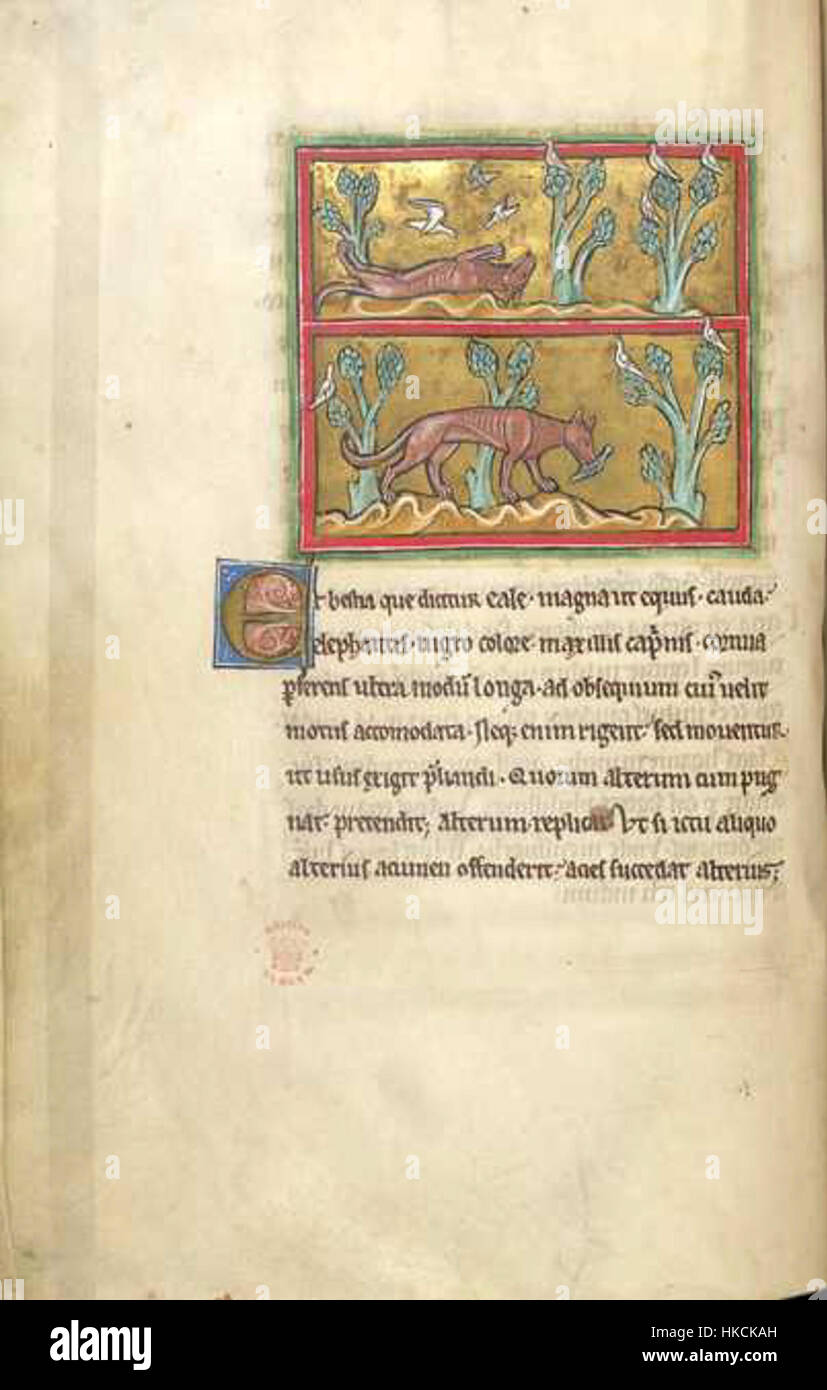 Et bestia que dicitur eale· magna ut equus· cauda·
elephantis· nigro colore· maxillis cap̄nis· cornua
p̄ferens ultra modū longa· ad obsequium cui᷒ uelit
motus accomodata· Neq; enim rigent· sed mouentur
ut usus exigit p̄liandi· Quorum alterum cum pug
nat· pretendit; alterum replicat Vt si ictu aliquo
alterius acumen offenderit· acies succedat alterius;
alamy
alamy stock photo
HKCKAH
www.alamy.com